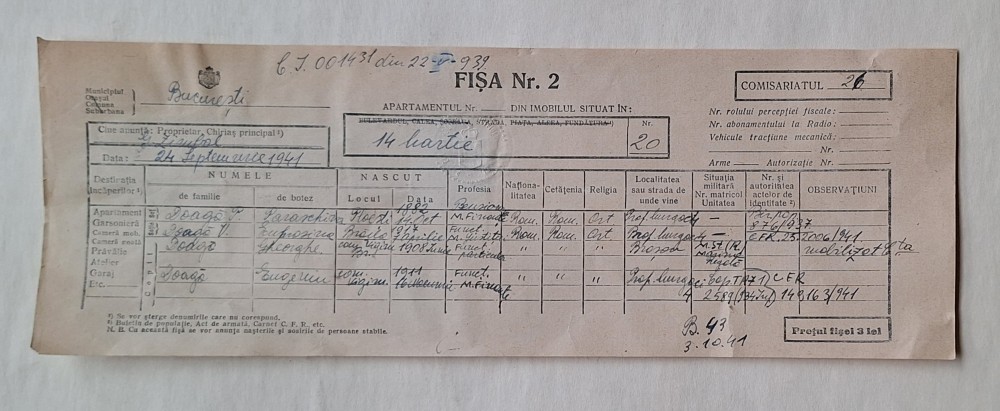 C.I. 001431 din 22-V-939
FIȘA Nr. 2
COMISARIATUL 26
Municipiul
Orașul
Comuna
Suburbana
București
APARTAMENTUL Nr. DIN IMOBILUL SITUAT ÎN:
BULEVARDUL, CALEA, ȘOSEAUA, STRADA, PIAȚA, ALEEA, FUNDĂTURA ¹)
Nr.
14 Martie
20
Nr. rolului percepției fiscale:
Nr. abonamentului la Radio:
Vehicule tracțiune mecanică:
Nr.
Arme Autorizație Nr.
Cine anunță: Proprietar, Chiriaș principal ¹)
Data: 24 Septembrie 1941
Destinația încăperilor ¹)
NUMELE
de familie
de botez
NASCUT
Locul
Data
Profesia
Naționalitatea
Cetățenia
Religia
Localitatea sau strada de unde vine
Situația militară Nr. matricol Unitatea
Nr. și autoritatea actelor de identitate ²)
OBSERVAȚIUNI
Apartament
Garsonieră
Cameră mob.
Cameră coastă
Prăvălie
Atelier
Garaj
Etc.
Copii
Doagă Paraschiva 1882 Oct Pension M. Finante Rom. Rom. Ort — 876/937
Doagă Eufrosina Braila Rom. Rom. Ort — CFR 252006/941
Doagă Gheorghe 1908 Iunie Funct. particular " " " Brașov mobilizat
Doagă Eugeniu 1911 Funct. M. Finante " " " CFR
149163/941
¹) Se vor șterge denumirile care nu corespund.
²) Buletin de populație, Act de armată, Carnet C. F. R., etc.
N. B. Cu această fișă se vor anunța nașterile și sosirile de persoane stabile.
B. 43
3.10.41
Prețul fișei 3 lei